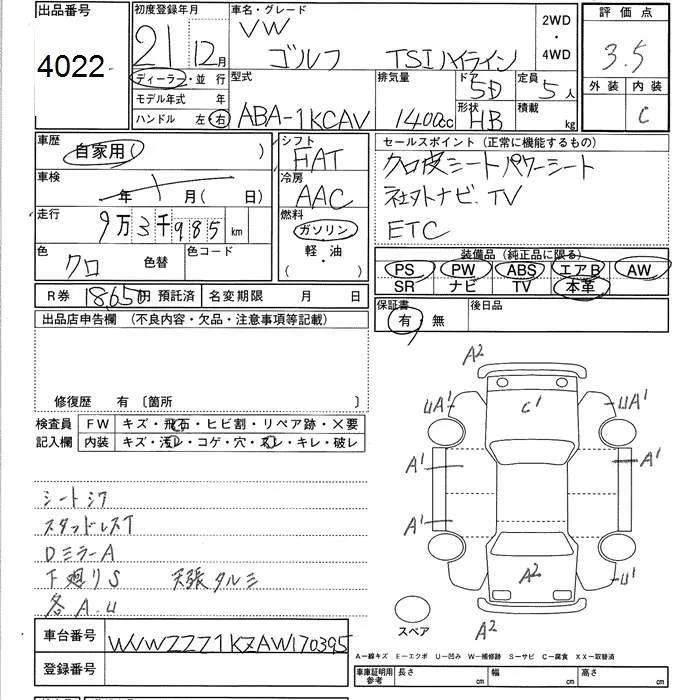 出品番号
4022
初度登録年月
21 12月
車名・グレード
VW
ゴルフ TSIハイライン
2WD
・
4WD
評価点
3.5
外装 内装
C
ディーラー・並行
モデル年式 年
ハンドル 左・右
型式
ABA-1KCAV
排気量
1400cc
ドア
5D
形状
HB
定員
5人
積載
kg
車歴
自家用( )
車検
年 月( 日)
走行
9万3千985km
色
クロ
色替
色コード
シフト
FAT
冷房
AAC
燃料
ガソリン
軽・油
( )
セールスポイント (正常に機能するもの)
クロ皮シート パワーシート
社外ナビ.TV
ETC
装備品(純正品に限る)
PS PW ABS エアB AW
SR ナビ TV 本革
R券 18650円 預託済
名変期限 月 日
保証書
有・無
後日品
出品店申告欄 (不良内容・欠品・注意事項等記載)
修復歴 有 〔箇所 〕
検査員
記入欄
FW キズ・飛石・ヒビ割・リペア跡・×要
内装 キズ・汚レ・コゲ・穴・スレ・キレ・破レ
シートシワ
スタッドレスT
DミラーA
下廻りS 天張タルミ
各A.U
A2
UA1
C1
UA1
A1
A1
A1
A2
U1
A2
スペア
車台番号
WVWZZZ1KZAW170395
登録番号
A-線キズ E-エクボ U-凹み W-補修跡 S-サビ C-腐食 XX-取替済
車庫証明用
参考
長さ cm
幅 cm
高さ cm